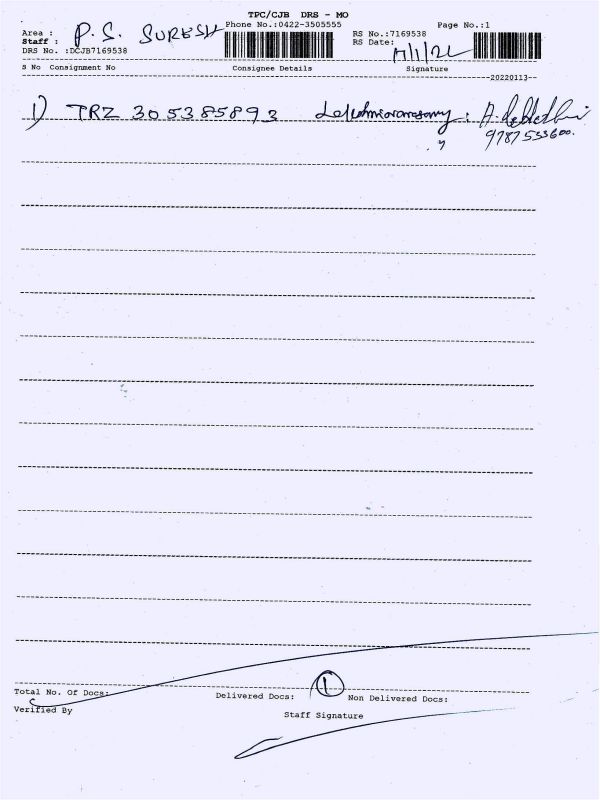 TPC/CJB DRS - MO
Phone No.:0422-3505555 Page No.:1
Area : P.S. SURESH RS No.:7169538
Staff : RS Date:
DRS No. :DCJB7169538
S No Consignment No Consignee Details Signature
20220113
1) TRZ 305385893
9787533600.
Total No. Of Docs: Delivered Docs: 1 Non Delivered Docs:
Verified By
Staff Signature